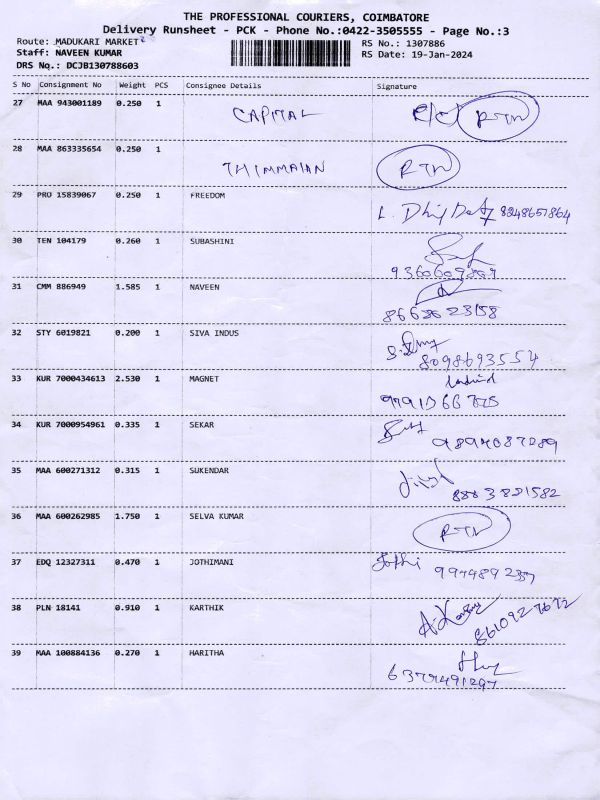 THE PROFESSIONAL COURIERS, COIMBATORE
Delivery Runsheet - PCK - Phone No.:0422-3505555 - Page No.:3
Route: MADUKARI MARKET2 RS No.: 1307886
Staff: NAVEEN KUMAR RS Date: 19-Jan-2024
DRS No.: DCJB130788603
S No Consignment No Weight PCS Consignee Details Signature
27 MAA 943001189 0.250 1 CAPITAL R/C/ RTN
28 MAA 863335654 0.250 1 THIMMAIAN RTN
29 PRO 15839067 0.250 1 FREEDOM
30 TEN 104179 0.260 1 SUBASHINI
31 CMM 886949 1.585 1 NAVEEN
8663623158
32 STY 6019821 0.200 1 SIVA INDUS
8098693554
33 KUR 7000434613 2.530 1 MAGNET
34 KUR 7000954961 0.335 1 SEKAR
35 MAA 600271312 0.315 1 SUKENDAR
8883821582
36 MAA 600262985 1.750 1 SELVA KUMAR RTN
37 EDQ 12327311 0.470 1 JOTHIMANI Jothi
38 PLN 18141 0.910 1 KARTHIK
8610927672
39 MAA 100884136 0.270 1 HARITHA